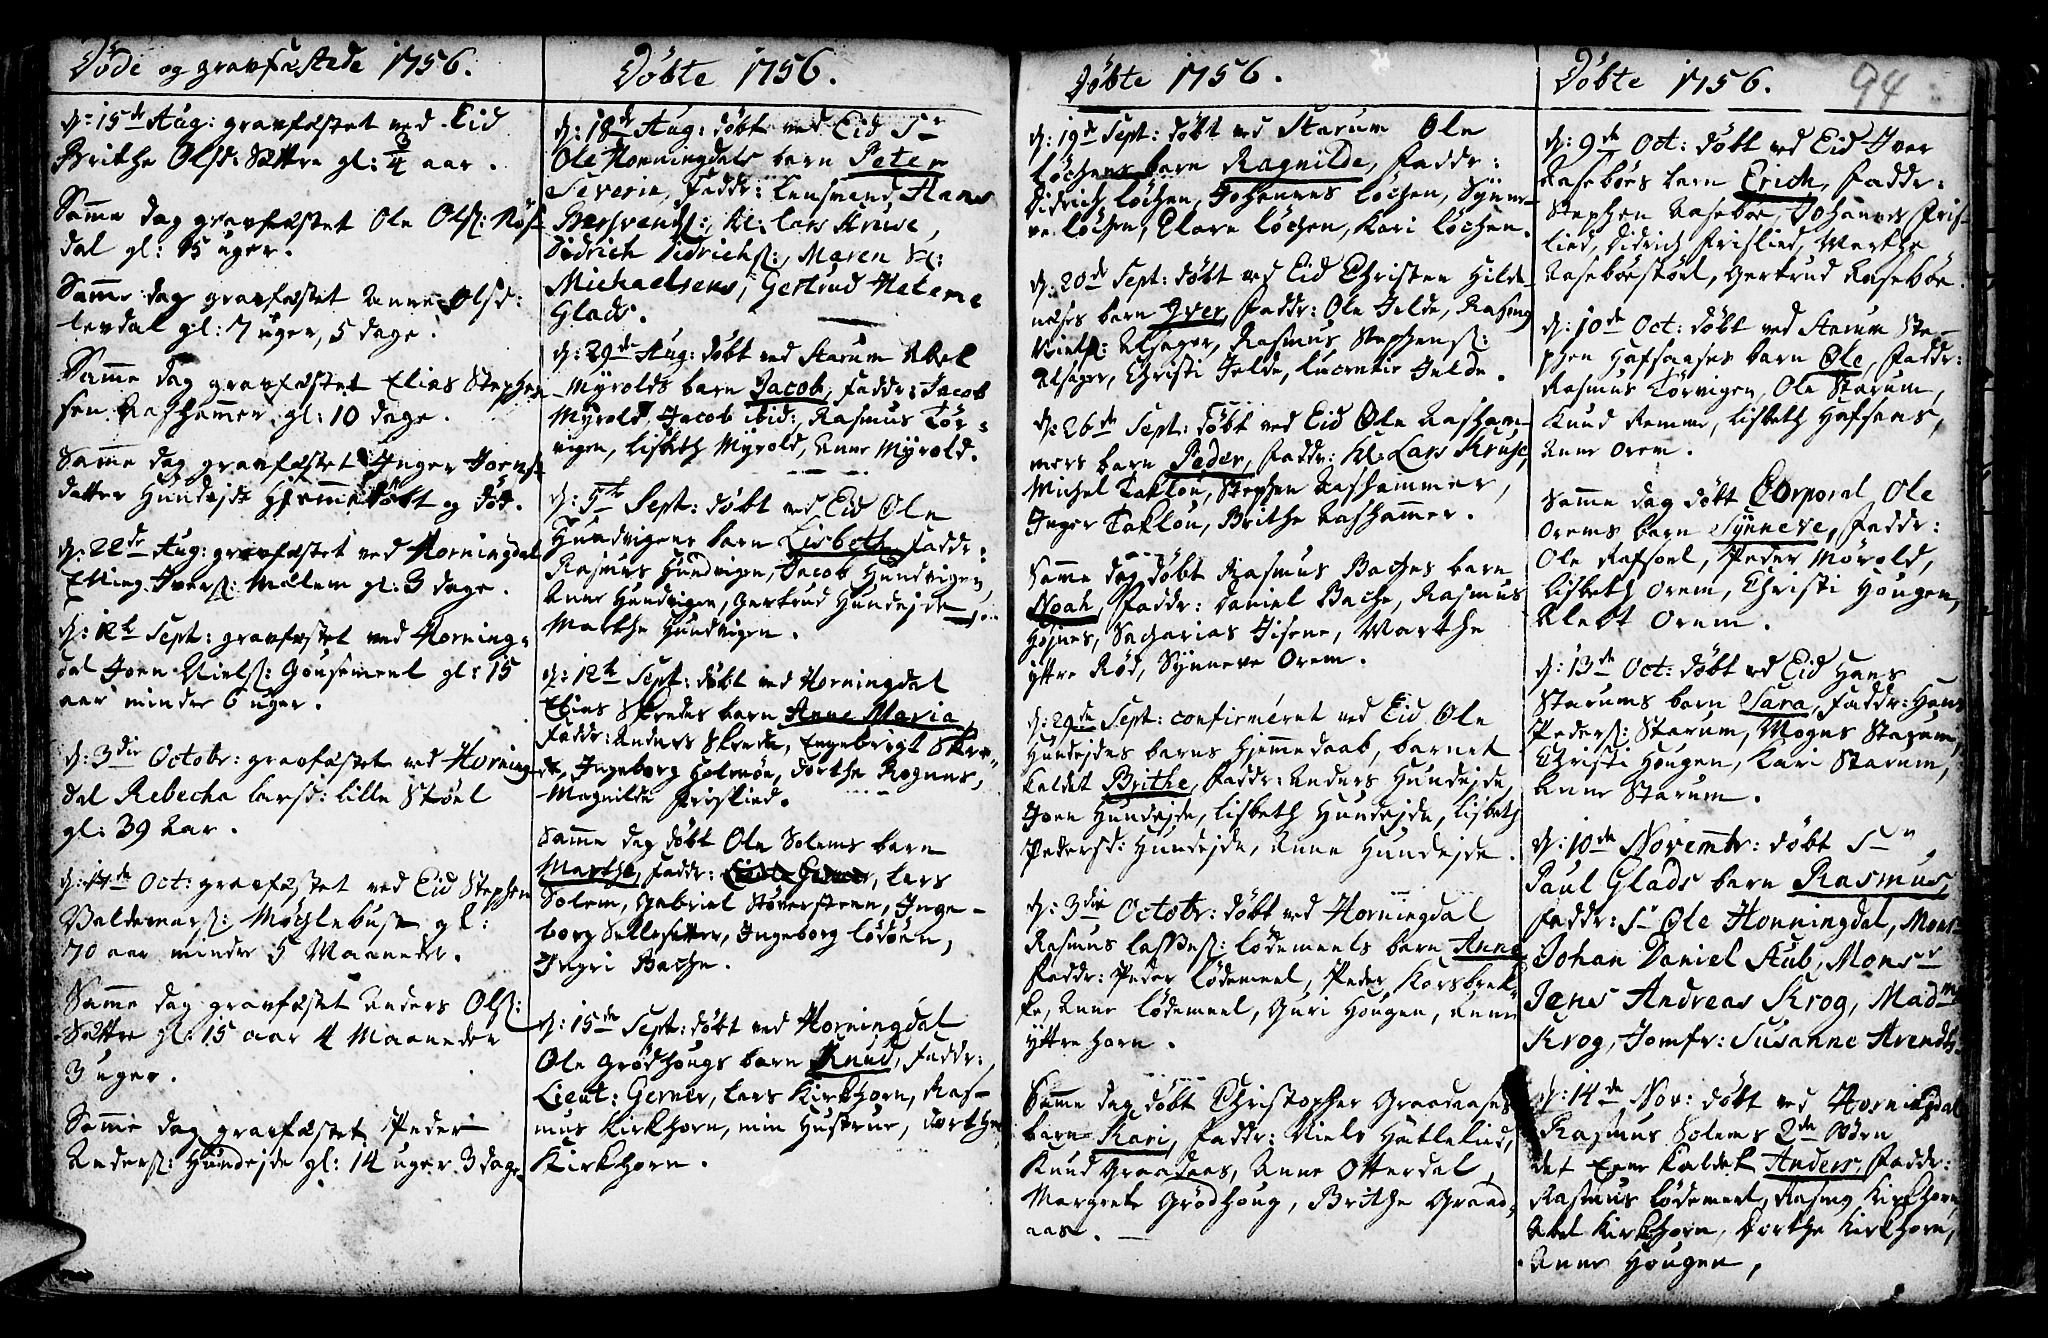 Döde og gravfæstede 1756.
d: 15de Aug: gravfæstet ved Eid
Brithe Olsd: Sættre gl: 3/4 aar.
Samme dag gravfæstet Ole Olss: Nös-
dal gl: 15 uger.
Samme dag gravfæstet Anne Olsd:
Levdal gl: 7 uger, 5 dage.
Samme dag gravfæstet Elias Stephen
sen Rashammer gl: 10 dage.
Samme dag gravfæstet Inger Joens-
datter Hundejde Hiemmedöbt og död.
d: 22de Aug: gravfæstet ved Horningdal
Elling Iverss: Mælem gl: 3 dage.
d: 12te Sept: gravfæstet ved Horning-
dal Joen Nielss: Gousemeel gl: 15
aar minder 6 uger.
d: 3die Octobr: gravfæstet ved Horning-
dal Rebecha Larsd: lille Störl
gl: 39 Aar.
d: 17de Oct: gravfæstet ved Eid Stephen
Valdemarss: Möglebust gl:
70 aar minder 5 Maaneder.
Samme dag gravfæstet Anders Olss:
Sættre gl: 15 aar 4 Maaneder
3 uger.
Samme dag gravfæstet Peder
Anderss: Hundejde gl: 14 uger 3 dage
Döbte 1756.
d: 18de Aug: döbt ved Eid Sr
Ole Honningdals barn Peter
Severin, Faddr: Lensmand Hans
Hl: Lars Kruse,
Didrich Didrichss:, Maren Sl:
Michaelsens, Gertrud Helene
Glads.
d: 29de Aug: döbt ved Starum Abel
Myrolds barn Jacob, Faddr: Jacob
Myrold, Jacob ibid:, Rasmus Tör-
vigen, Lisbeth Myrold, Anne Myrold.
d: 5te Sept: döbt ved Eid Ole
Hundvigens barn Lisbeth, Faddr:
Rasmus Hundvigen, Jacob Hundvigen,
Anne Hundvigen, Gertrud Hundejde,
Marthe Hundvigen.
d: 12te Sept: döbt ved Horningdal
Elias Skredes barn Anne Maria,
Faddr: Anders Skrede, Engebrigt Skre-
de, Ingeborg Holmön, Dorthe Rognnes,
Magnilde Frislied.
Samme dag döbt Ole Solems barn
Marthe, Faddr: Lars
Solem, Gabriel Störersteen, Inge-
borg Sellesetter, Ingeborg Lödöen,
Ingri Bache.
d: 15de Sept: döbt ved Horningdal
Ole Grödhougs barn Knud, Faddr:,
Lieut: Gerner, Lars Kirkhorn, Ras-
mus Kirkhorn, min Hustrue, Dorthe
Kirkhorn.
Döbte 1756.
d: 19de Sept: döbt ved Starum Ole
Löchens barn Ragnilde, Faddr:
Didrich Löchen, Johannes Löchen, Synne-
ve Löchen, Clare Löchen, Kari Löchen.
d: 20de Sept: döbt ved Eid Christen Hilde-
nesses barn Iver, Faddr: Ole Jelde, Rasmus
Nielss: Alsager, Rasmus Stephenss:
Alsager, Christi Jelde, Lucretie Jelde.
d: 26de Sept: döbt ved Eid Ole Rasham-
mers barn Peder, Faddr: Hl: Lars Kruse,
Michel Taklou, Stephen Rashammer,
Inger Taklou, Brithe Rashammer.
Samme dag döbt Rasmus Baches barn
Noah, Faddr: Daniel Bache, Rasmus
Hojnes, Sacharias Jisene, Marthe
yttre Röd, Synneve Orem.
d: 29de Sept: confirmeret ved Eid Ole
Hundejdes barns Hjemmedaab, barnet
kaldet Brithe, Faddr: Anders Hundejde,
Joen Hundejde, Lisbeth Hundejde, Lisbeth
Pedersd: Hundejde, Anne Hundejde.
d: 3die Octobr: döbt ved Horningdal
Rasmus Lassess: Lödemeels barn Anne
Faddr: Peder Lödemeel, Peder Korsbrek-
ke, Anne Lödemeel, Guri Hougen, Anne
yttre horn.
Samme dag döbt Christopher Graadaases
barn Kari, Faddr: Niels Hätlelied,
Knud Graadaas, Anne Otterdal,
Margrete Grödhoug, Brithe Graad-
aas.
Döbte 1756.
94
d: 9de Oct: döbt ved Eid Iver
Raseböes barn Erich, Faddr:
Stephen Raseböe, Johannes Fris-
lied, Didrich Frislied, Marthe
Raseböestöel, Gertrud Raseböe.
d: 10de Oct: döbt ved Starum Ste-
phen Hafsaases barn Ole, Faddr:
Rasmus Törvigen, Ole Starum,
Knud Remme, Lisbeth Hafsaas,
Anne Orem.
Samme dag döbt Corporal Ole
Orems barn Synneve, Faddr:
Ole Rafsoel, Peder Mörold,
Lisbeth Orem, Christi Hougen,
Alebt Orem.
d: 13de Oct: döbt ved Eid Hans
Starums barn Sara, Faddr: Hans
Pederss: Starum, Mogns Starum,
Christi Hougen, Kari Starum,
Anne Starum.
d: 10de Novembr: döbt Sr
Paul Glads barn Rasmus,
Faddr: Sr Ole Honningdal, Monsr
Johan Daniel Stub, Monsr
Jens Andreas Krog, Madme
Krog, Jomfr: Susanne Arendtz.
d: 14de Nov: döbt ved Horningdal
Rasmus Solems 2de Börn
det Eene kaldet Anders, Faddr:
Rasmus Lödemeel, Rasmus Kirkhorn,
Abel Kirkhorn, Dorthe Kirkhorn,
Anne Hougen,